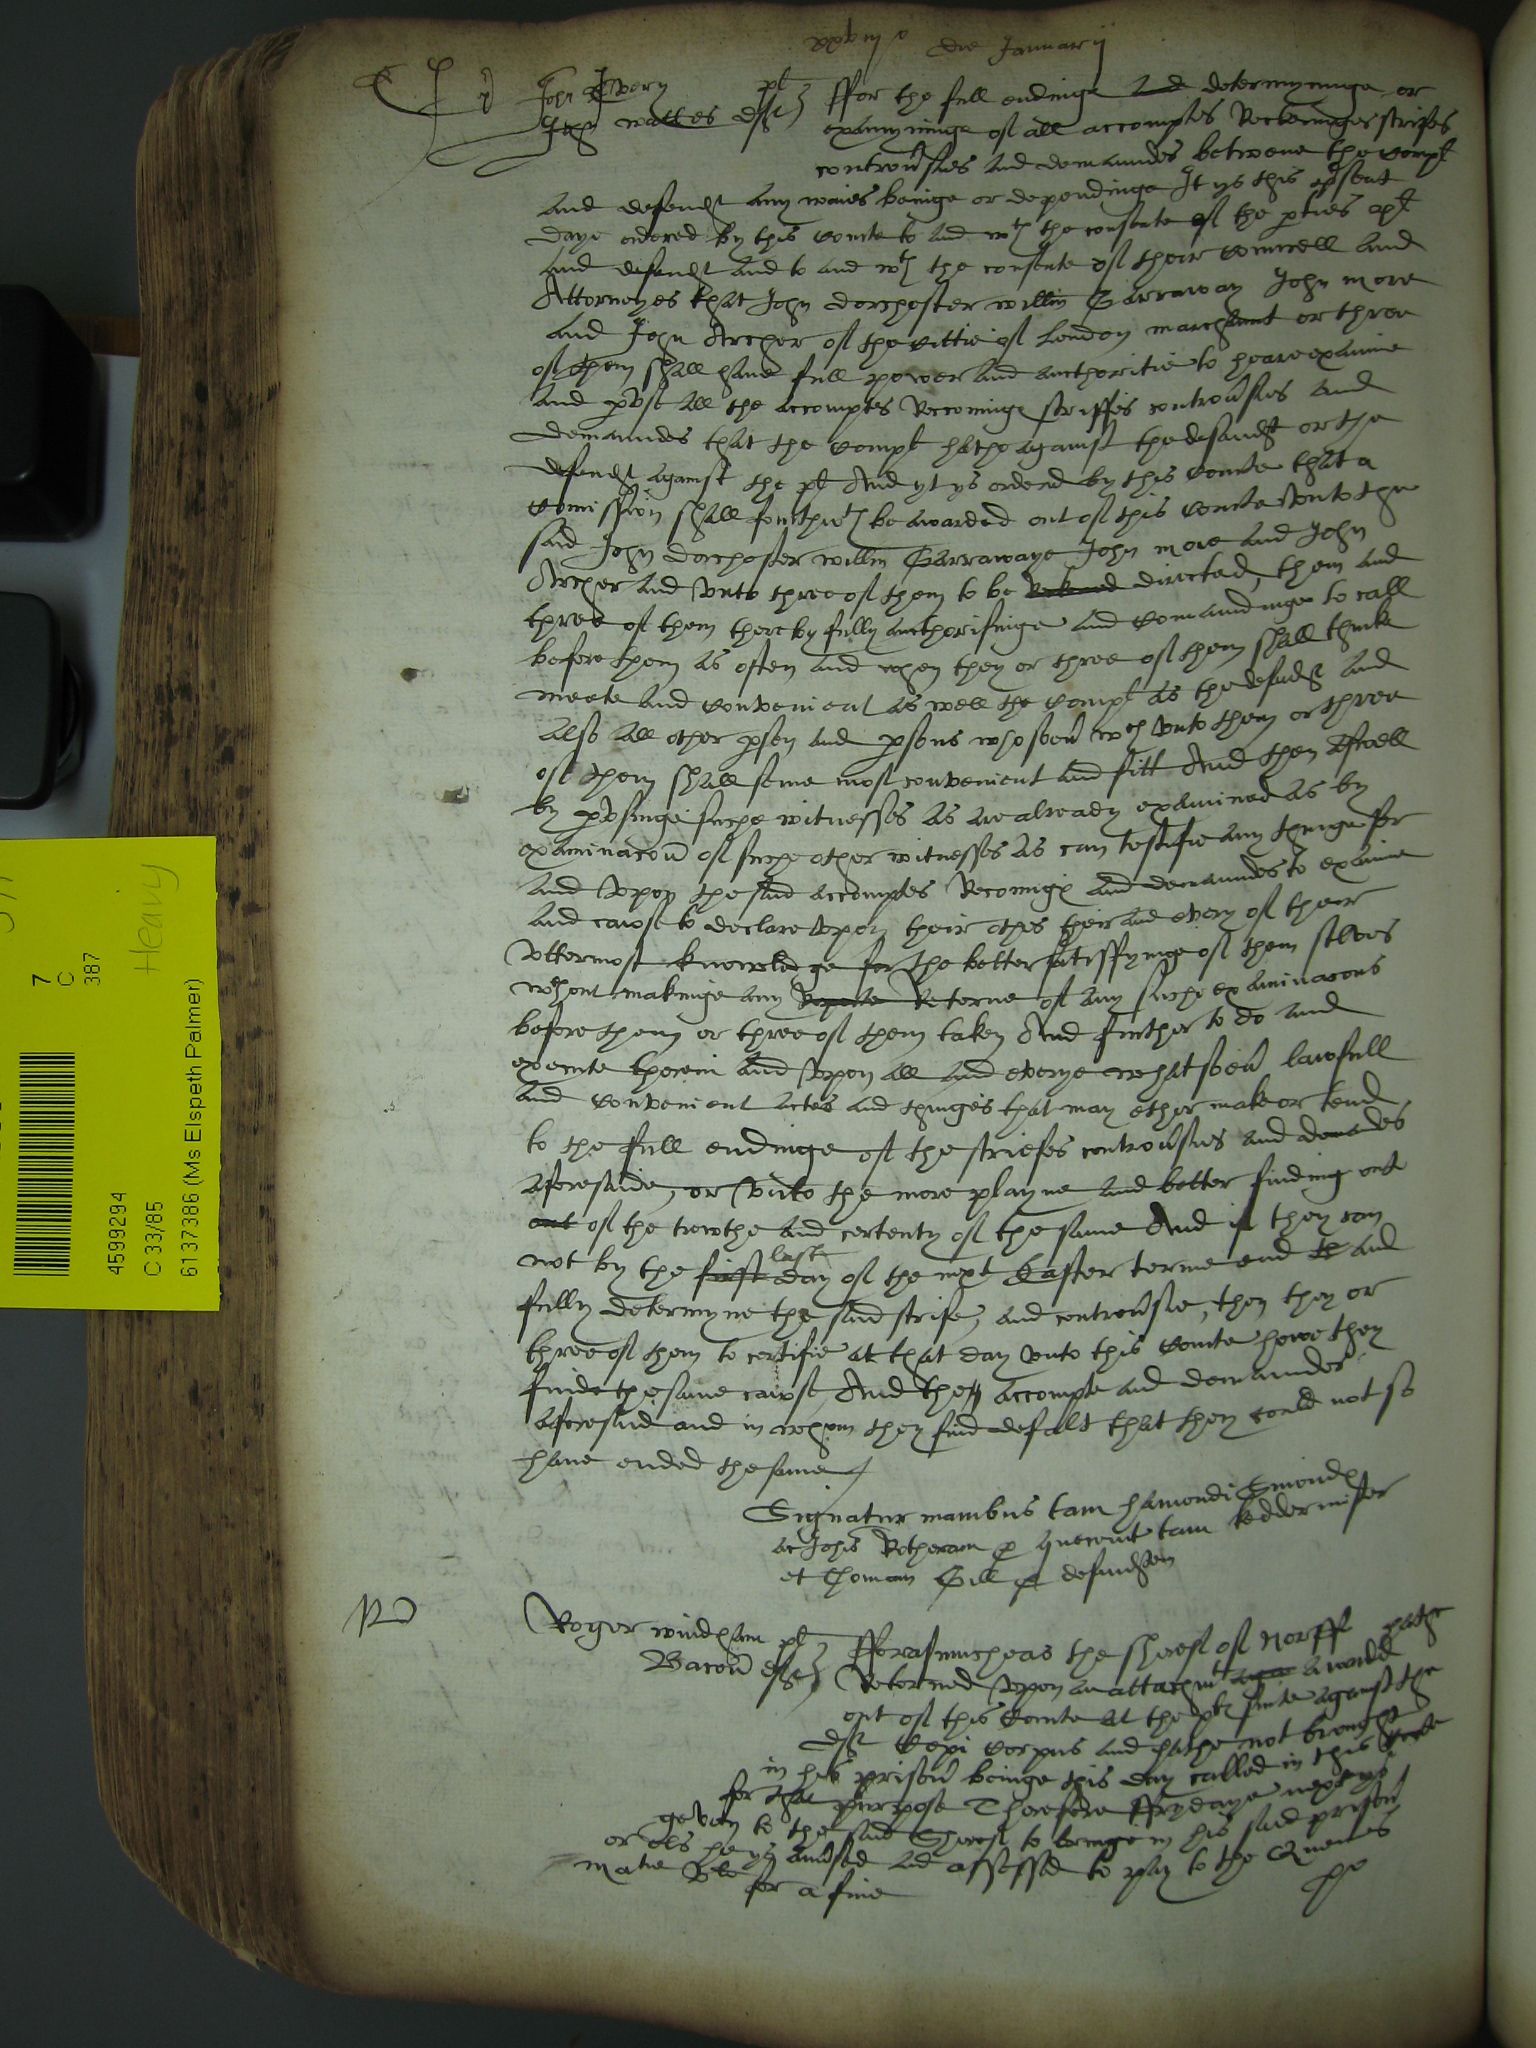 xxviijo die Januarij
John Ivery pl
John wattes deft
ffor the full endinge and determyninge or
examyninge of all accomptes Reckeninges strifes
controusies and demaundes betwene the compl
and defendt any waies beinge or dependinge It ys this psent
daye ordered by this courte to and wth the consente of the pties apl
and defendt and to and wth the consente of their councell and
Attorneyes that John dorchester willm Garraway John more
and John Archer of the cittie of London marchaunt or three
of them shall have full power and aucthoritie to heare examine
and pvse all the accomptes Reconinge striffes controusies and
demaundes that the compl hathe against the defendt or the
defendt against the pl And yt ys ordered by this courte that a
comission shall fourthwth be awarded out of this courte vnto the
said John dorchester willm Garrawaye John more and John
Archer and vnto three of them to be directed, them and
three of them thereby fully aucthorisinge and comaundinge to call
before them as often and when they or three of them shall thinke
meete and convenient as well the compl as the defendt and
also all other pson and psons whosoeu wch vnto them or three
of them shall seme most convenient and fitt And then aswell
by pvsinge suche witnesses as are already examined as by
examinacon of suche other witnesses as can testifie any thinge for
and vpon the said accomptes Reconinge and demaundes to examine
and cause to declare vpon their othes their and every of their
vttermost knowledge for the better satisffyinge of them selves
wthout makinge any Reporte Retorne of any suche examinacons
before them or three of them taken And further to do and
execute therein and vpon all and everye whatsoeu lawfull
and convenient actes and thinges that may ether make or tend
to the full endinge of the striefes controusies and demaundes
aforesaide, or vnto the more playne and better finding out
out of the trowthe and certenty of the same And if they can
not by the first last day of the next Easter terme end th and
fully determyne the said strife, and controusie, then they or
three of them to certifie at that day vnto this courte howe they
finde the same cause, And the accompte and demaundes
aforesaid and in whom they find defalt that they could not so
have ended the same
Signatur manibus tam hamondi
ac Johis Rotheram p querent tam kedderminster
et Thomam Gill p defendten
Roger windham pl
Bacon deft
fforasmucheas the shereff of Norff hathe
Retorned vpon an attachmt aga awarded
out of this courte at the pl sute against the
deft Cepi Corpus and hathe not brought
in his prison beinge this day called in this Corte
for that purpose Therefore ffrydaye next ys
geven to the said Shereff to bringe in his said prison
or els he ys amcied and assessed to pay to the Quenes
matie for a fine
4599294
C 33/85
6137386 (Ms Elspeth Palmer)
7
C
387
Heavy